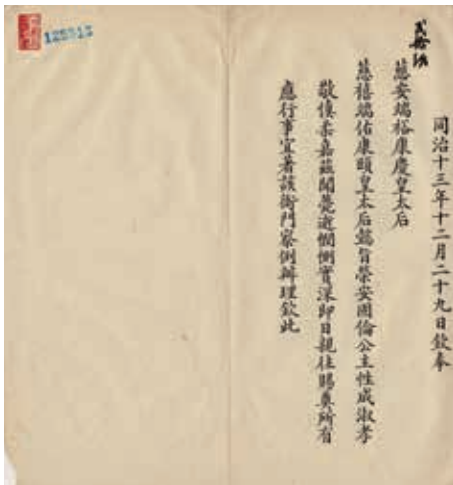 同治十三年十二月二十九日欽奉
慈安端裕康慶皇太后
慈禧端佑康頤皇太后懿旨榮安固倫公主性成淑孝
敬慎柔嘉茲聞薨逝憫惻實深即日親往賜奠所有
應行事宜著該衙門察例辦理欽此